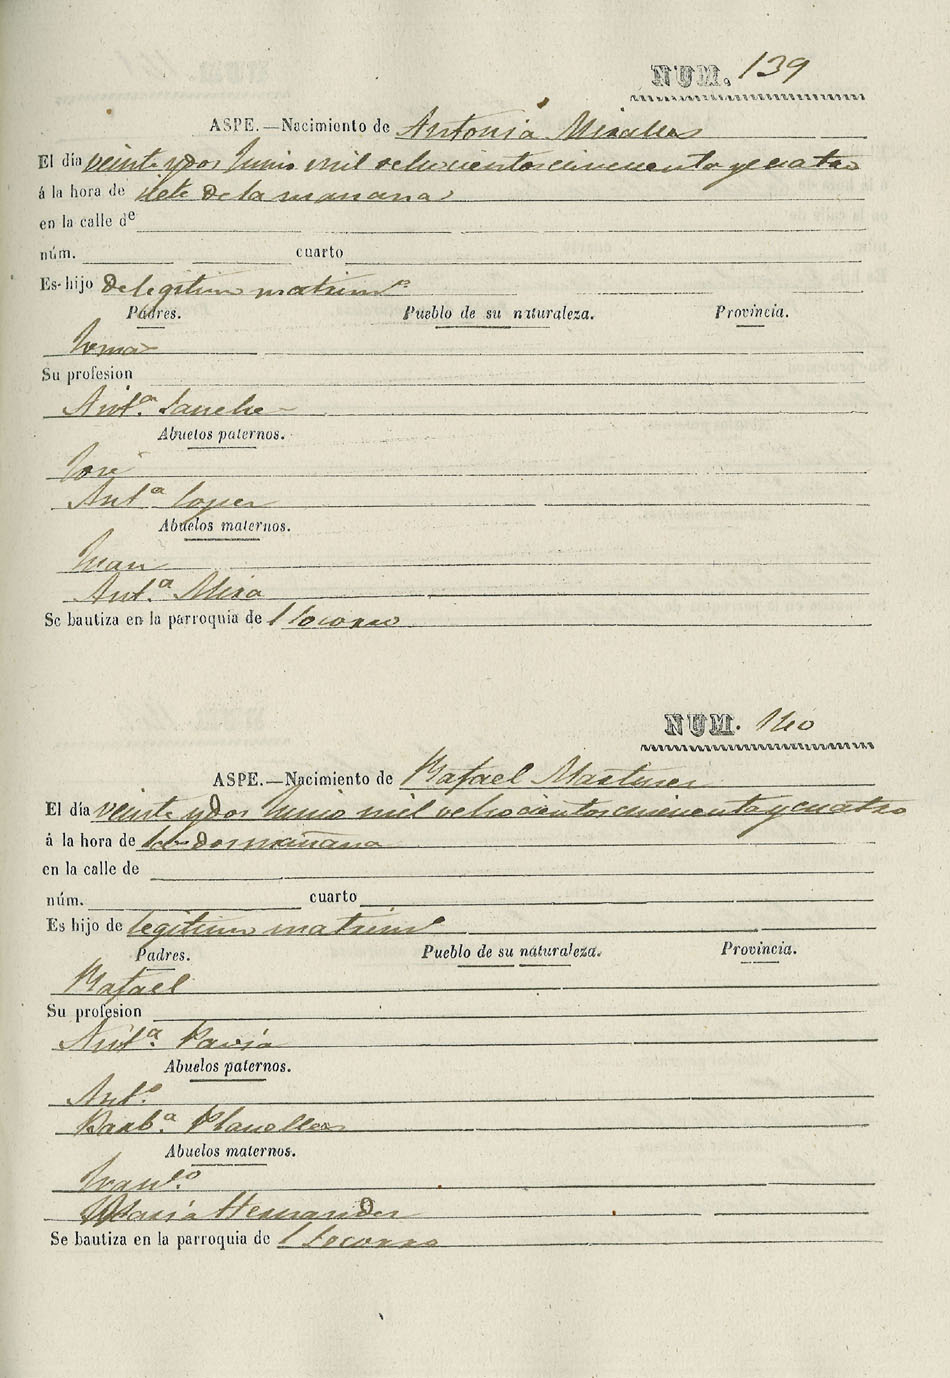 NUM. 139
ASPE.—Nacimiento de Antonia Miralles
El día veinte y dos Junio mil ochocientos cincuenta y cuatro
á la hora de siete de la mañana
en la calle de
núm. cuarto
Es hijo de legitimo matrimo
Padres. Pueblo de su naturaleza. Provincia.
Tomas
Su profesion
Anta. Sanche
Abuelos paternos.
José
Anta Lopez
Abuelos maternos.
Juan
Anta. Mira
Se bautiza en la parroquia de l Socorro
NUM. 140
ASPE.—Nacimiento de Rafael Martinez
El día veinte y dos Junio mil ochocientos cincuenta y cuatro
á la hora de las dos mañana
en la calle de
núm. cuarto
Es hijo de legitimo matrimo
Padres. Pueblo de su naturaleza. Provincia.
Rafael
Su profesion
Anta. Pavia
Abuelos paternos.
Anto.
Barba. Planelles
Abuelos maternos.
Franco.
Maria Hernandez
Se bautiza en la parroquia de l Socorro